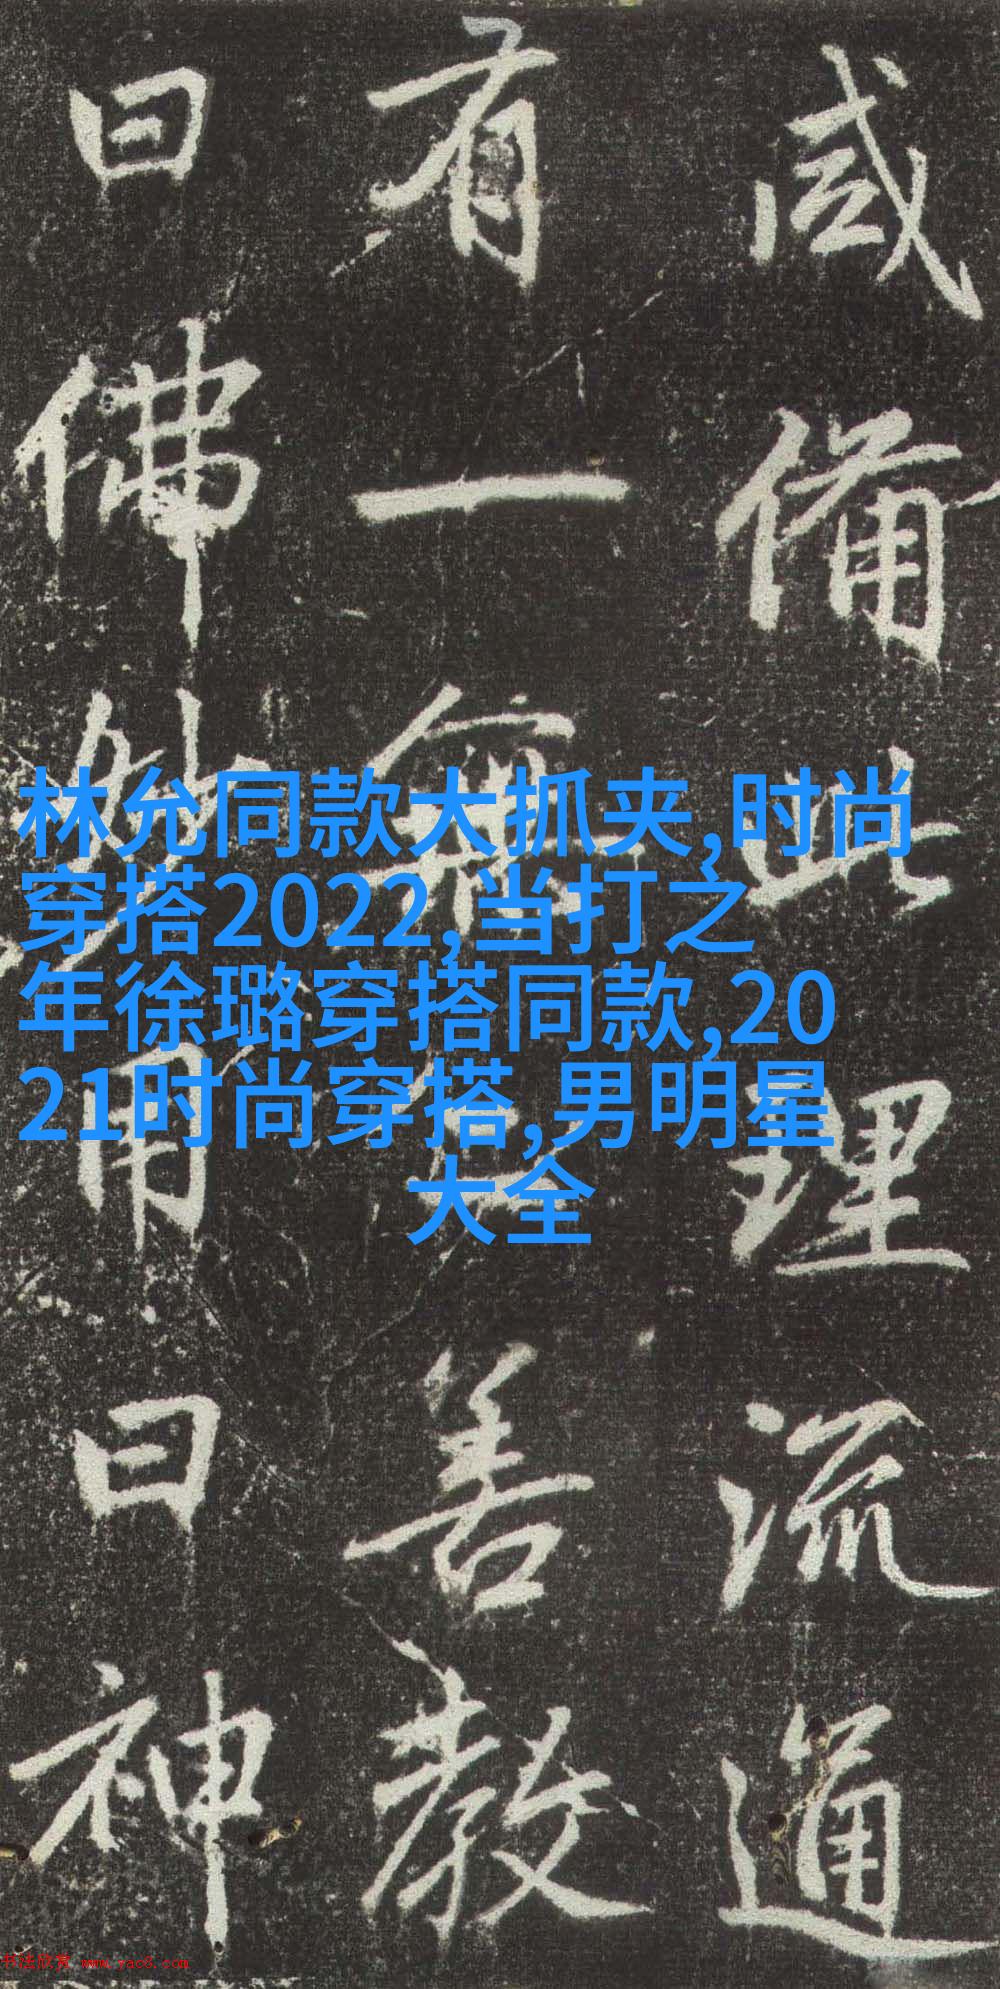 咸備此理流通
有一無善教
曰佛用曰神
林允同款大抓夹,时尚
穿搭2022,当打之
年徐璐穿搭同款,20
21时尚穿搭,男明星
大全
书法欣赏 www.yac8.com